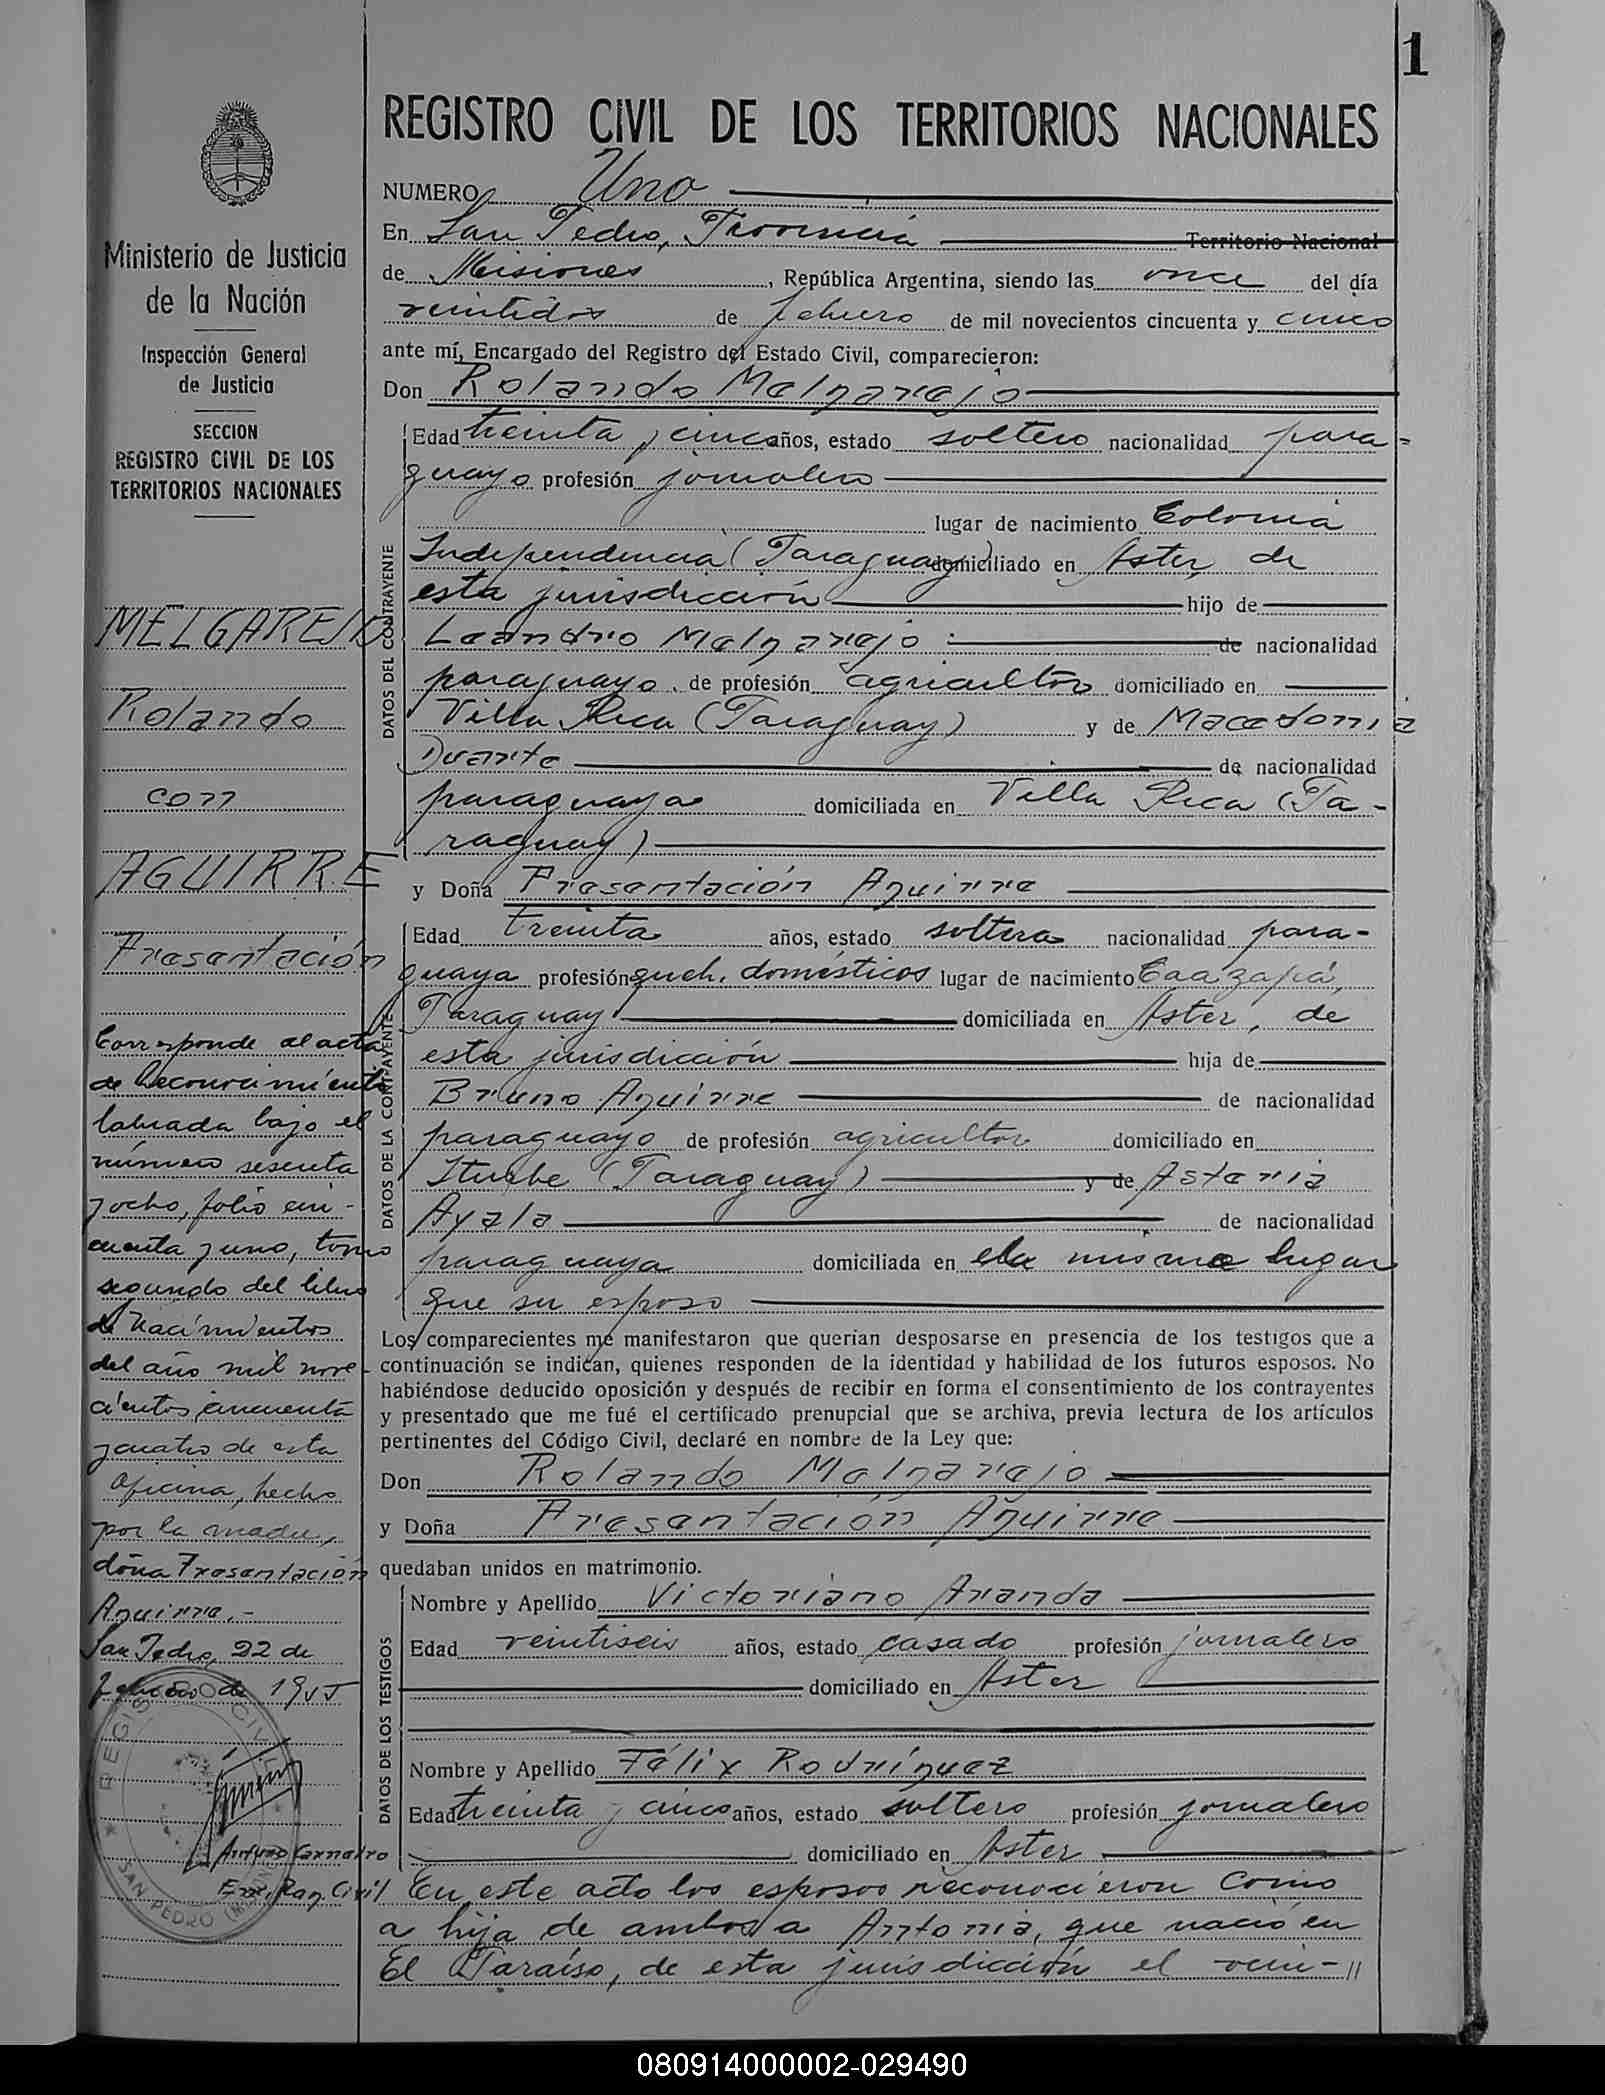 1
REGISTRO CIVIL DE LOS TERRITORIOS NACIONALES
Ministerio de Justicia
de la Nación
Inspección General
de Justicia
SECCION
REGISTRO CIVIL DE LOS
TERRITORIOS NACIONALES
MELGAREJO
Rolando
con
AGUIRRE
Presentación
Corresponde al acta
de Reconocimiento
labrada bajo el
número sesenta
y ocho, folio cin-
cuenta y uno, tomo
segundo del libro
de Nacimientos
del año mil nove-
cientos cincuenta
y cuatro de esta
Oficina, hecho
por la madre,
doña Presentación
Aguirre.-
San Pedro, 22 de
febrero de 1955
REGISTRO CIVIL
SAN PEDRO
Enc. Reg. Civil
NUMERO Uno
En San Pedro, Provincia Territorio Nacional
de Misiones, República Argentina, siendo las once del día
veintidos de febrero de mil novecientos cincuenta y cinco
ante mí, Encargado del Registro del Estado Civil, comparecieron:
Don Rolando Melgarejo
DATOS DEL CONTRAYENTE
Edad treinta y cinco años, estado soltero nacionalidad para-
guayo profesión jornalero
lugar de nacimiento Colonia
Independencia (Paraguay) domiciliado en Aster, de
esta jurisdicción hijo de
Leandro Melgarejo de nacionalidad
paraguayo de profesión agricultor domiciliado en
Villa Rica (Paraguay) y de Macedonia
Duarte de nacionalidad
paraguaya domiciliada en Villa Rica (Pa-
raguay)
y Doña Presentación Aguirre
DATOS DE LA CONTRAYENTE
Edad treinta años, estado soltera nacionalidad para-
guaya profesión queh. domésticos lugar de nacimiento Caazapá,
Paraguay domiciliada en Aster, de
esta jurisdicción hija de
Bruno Aguirre de nacionalidad
paraguayo de profesión agricultor domiciliado en
Iturbe (Paraguay) y de Asteria
Ayala de nacionalidad
paraguaya domiciliada en el mismo lugar
que su esposo
Los comparecientes me manifestaron que querían desposarse en presencia de los testigos que a
continuación se indican, quienes responden de la identidad y habilidad de los futuros esposos. No
habiéndose deducido oposición y después de recibir en forma el consentimiento de los contrayentes
y presentado que me fué el certificado prenupcial que se archiva, previa lectura de los artículos
pertinentes del Código Civil, declaré en nombre de la Ley que:
Don Rolando Melgarejo
y Doña Presentación Aguirre
quedaban unidos en matrimonio.
DATOS DE LOS TESTIGOS
Nombre y Apellido Victoriano Aranda
Edad veintiseis años, estado casado profesión jornalero
domiciliado en Aster
Nombre y Apellido Félix Rodríguez
Edad treinta y cinco años, estado soltero profesión jornalero
domiciliado en Aster
En este acto los esposos reconocieron como
a hija de ambos a Antonia, que nació en
El Paraíso, de esta jurisdicción el vein-//
080914000002-029490